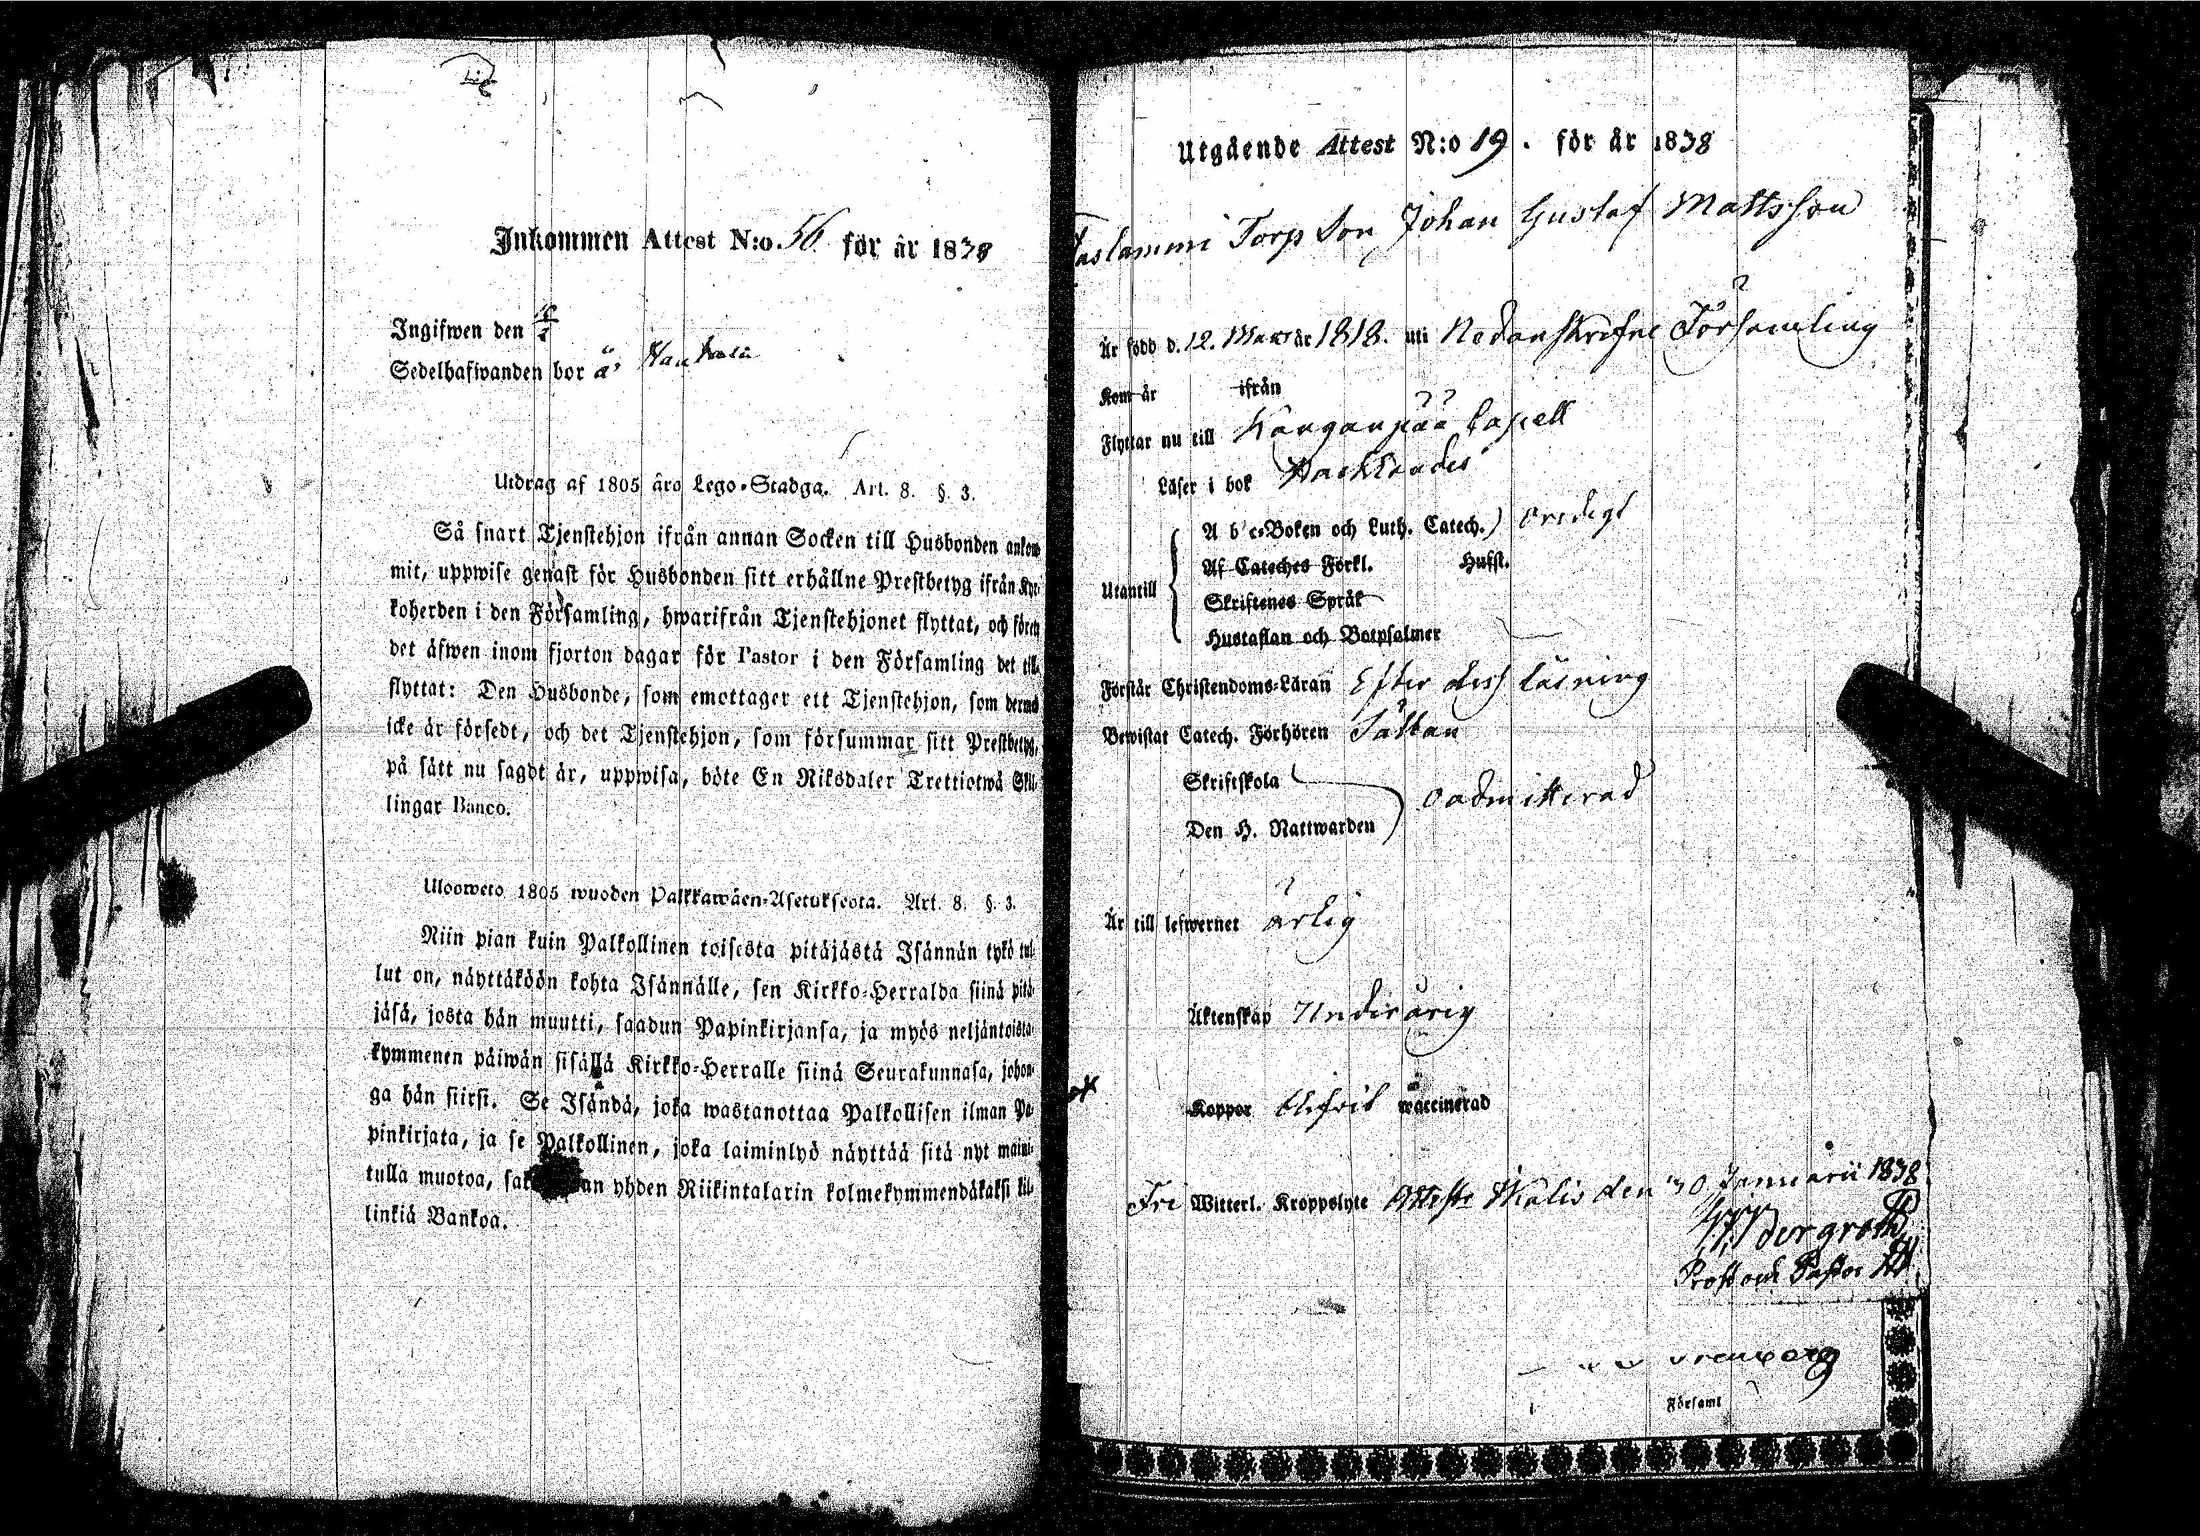 Inkommen Attest N:o. 56 för år 1838
Ingifwen den
Sedelhafwanden bor å
Utdrag af 1805 års Lego-Stadga. Art. 8. §. 3.
Så snart Tjenstehjon ifrån annan Socken till Husbonden ankom
mit, uppwise genast för Husbonden sitt erhållne Prestbetyg ifrån Kyr-
koherden i den Församling, hwarifrån Tjenstehjonet flyttat, och förete
det äfwen inom fjorton dagar för Pastor i den Församling det till-
flyttat: Den Husbonde, som emottager ett Tjenstehjon, som dermed
icke är försedt, och det Tjenstehjon, som försummar sitt Prestbetyg,
på sätt nu sagdt är, uppwisa, böte En Riksdaler Trettiotwå Skil-
lingar Banco.
Uloosweto 1805 wuoden Palkkawäen-Asetuksesta. Art. 8. §. 3.
Niin pian kuin Palkollinen toisesta pitäjästä Isännän tykö tul-
lut on, näyttäköön kohta Isännälle, sen Kirkko-Herralda siinä pitä-
jäsä, josta hän muutti, saadun Papinkirjansa, ja myös neljäntoista-
kymmenen päiwän sisällä Kirkko-Herralle siinä Seurakunnasa, johon-
ga hän siirsi. Se Isändä, joka wastanottaa Palkollisen ilman Pa-
pinkirjata, ja se Palkollinen, joka laiminlyö näyttää sitä nyt maini-
tulla muotoa, an yhden Riikintalarin kolmekymmendäkaksi kil-
linkiä Bankoa.
Utgående Attest N:o 19. för år 1838
Torp Son Johan Gustaf Mattsson
Är född d. 12. Mars år 1818. uti Nedanskrefne Församling
Kom år ifrån
Flyttar nu till Kanganpää Capell
Läser i bok
A b c-Boken och Luth. Catech.) oredigt
Af Cateches Förkl. Husst.
Utantill
Skriftenes Språk
Hustaflan och Botpsalmer
Förstår Christendoms-Läran Efter dess läsning
Bewistat Catech. Förhören Sällan
Skriftskola
oadmitterad
Den H. Nattwarden
Är till lefwernet ärlig
Äktenskap Underårig
Koppor wäccinerad
Fri Witterl. Kroppslyte den 30 Januarii 1838
Bergroth
Prost och Pastor
Församl